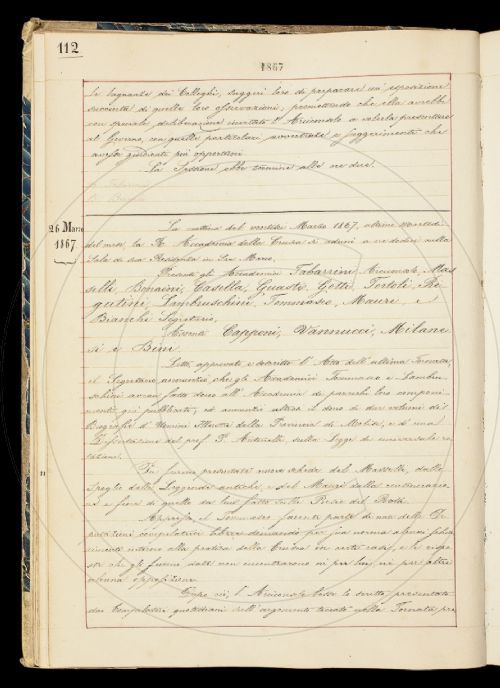 112
1867
le lagnanze dei Colleghi, suggerì loro di preparare un' esposizione
succinta di quelle loro osservazioni, promettendo che ella avrebbe
con speciale deliberazione invitato l' Arciconsolo a volerla presentare
al Governo, con quelle particolari avvertenze e suggerimenti che
avesse giudicati più opportuni.
La Sessione ebbe termine alle ore due.
26 Marzo
1867.
La mattina del ventisei Marzo 1867, ultimo Martedì
del mese, la R. Accademia della Crusca si adunò a ore dodici nella
Sala di sua Residenza in San Marco.
Presenti gli Accademici Tabarrini Arciconsolo, Mas-
selli, Bonaini, Casella, Guasti, Gotti, Tortoli, Re-
, Lambruschini, Tommaseo, Mauri, e
Bianchi Segretario.
Assenti Capponi, Vannucci, Milane-
si e Bini.
Letto, approvato e descritto l' Atto dell' ultima Tornata,
il Segretario annunziò che gli Accademici Tommaseo e Lambru-
schini avean fatto dono all' Accademia di parecchi loro componi-
menti già pubblicati, ed annunziò altresì il dono di due volumi di
Biografie d' Uomini Illustri della Provincia di Molise, e d' una
Dissertazione del prof. P. sulla Legge di universale
Poi furono presentate nuove schede del Masselli, dallo
spoglio delle Leggende antiche, e del Mauri dalla continuazio-
ne e fine di quello da lui fatto sulle Poesie del Redi.
Appresso, il Tommaseo facente parte di una delle De-
putazioni compilatrici domandò per sua norma alcuni schia-
rimenti intorno alla pratica della Crusca in certi casi, e le rispo-
ste che gli furono date non incontrarono nè per lui, nè per altri
alcuna opposizione.
Dopo ciò, l' Arciconsolo lesse lo scritto, presentato
dai Compilatori quotidiani sull' argomento toccato nella Tornata pre-